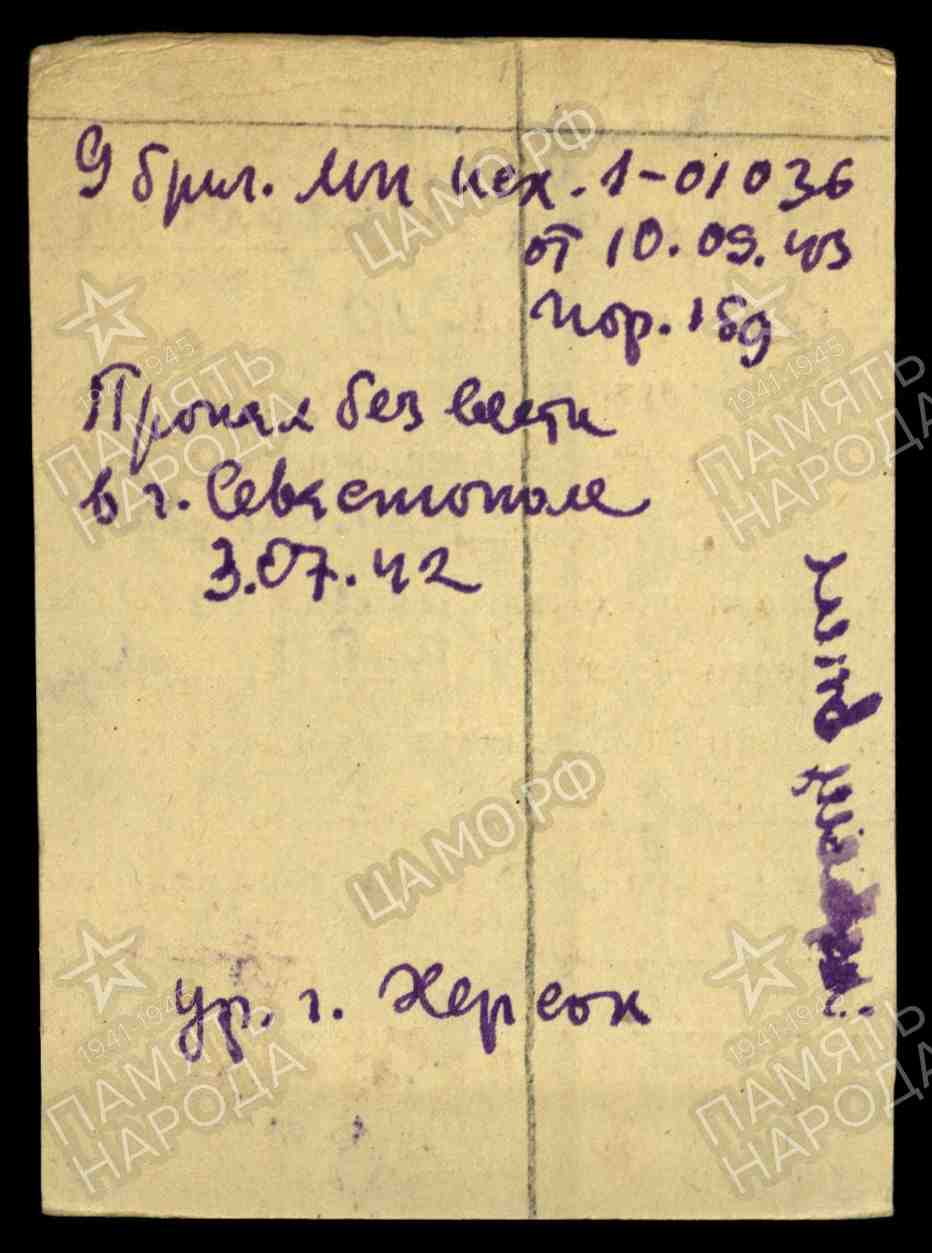 9 бриг. МП исх. 1-01036
от 10.09.43
Пор. 189
Пропал без вести
в г. Севастополе
3.07.42
ур. г. Херсон
ЦАМО.РФ
1941-1945
ПАМЯТЬ
НАРОДА
1941-1945
ПАМЯТЬ
НАРОДА
ЦАМО.РФ
1941-1945
ПАМЯТЬ
НАРОДА
1941-1945
ПАМЯТЬ
НАРОДА